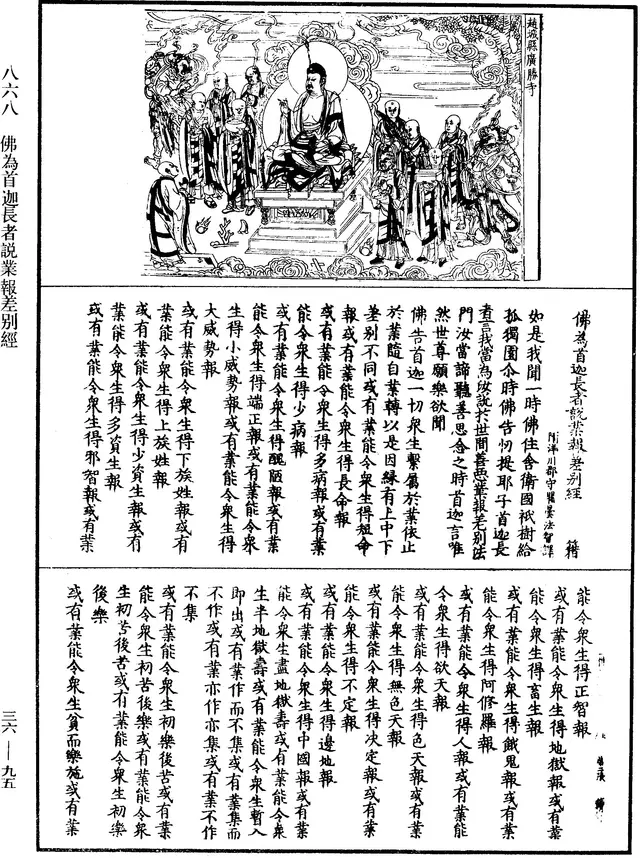 趙城縣廣勝寺
佛為首迦長者說業報差別經 籍
隋洋川郡守瞿曇法智譯
如是我聞一時佛住舍衛國祇樹給
孤獨園尒時佛告忉提耶子首迦長
者言我當為汝說於世間善惡業報差別法
門汝當諦聽善思念之時首迦言唯
然世尊願樂欲聞
佛告首迦一切衆生繫屬於業依止
於業隨自業轉以是因緣有上中下
差別不同或有業能令衆生得短命
報或有業能令衆生得長命報
或有業能令衆生得多病報或有業
能令衆生得少病報
或有業能令衆生得醜陋報或有業
能令衆生得端正報或有業能令衆
生得小威勢報或有業能令衆生得
大威勢報
或有業能令衆生得下族姓報或有
業能令衆生得上族姓報
或有業能令衆生得少資生報或有
業能令衆生得多資生報
或有業能令衆生得邪智報或有業
能令衆生得正智報
或有業能令衆生得地獄報或有業
能令衆生得畜生報
或有業能令衆生得餓鬼報或有業
能令衆生得阿修羅報
或有業能令衆生得人報或有業能
令衆生得欲天報
或有業能令衆生得色天報或有業
能令衆生得無色天報
或有業能令衆生得决定報或有業
能令衆生得不定報
或有業能令衆生得邊地報
或有業能令衆生得中國報或有業
能令衆生盡地獄壽或有業能令衆
生半地獄壽或有業能令衆生暫入
即出或有業作而不集或有業集而
不作或有業亦作亦集或有業不作
不集
或有業能令衆生初樂後苦或有業
能令衆生初苦後樂或有業能令衆
生初苦後苦或有業能令衆生初樂
後樂
或有業能令衆生貧而樂施或有業
八六八 佛為首迦長者説業報差别經
三六—九五